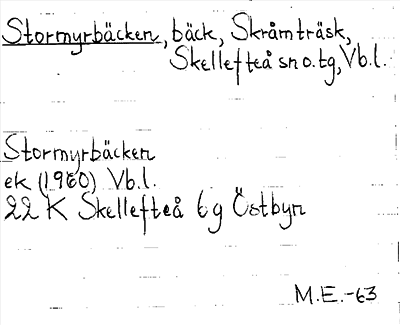 Stormyrbäcken, bäck, Skråmträsk,
Skellefteå sn o. tg, Vb. l.
Stormyrbäcken
ek (1960) Vb. l.
22 K Skellefteå 6 g Östbyn
M.E.-63